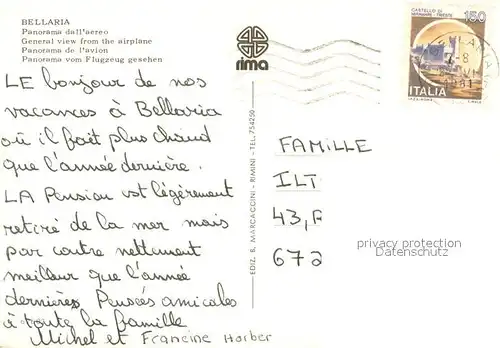 BELLARIA
Panorama dall'aereo
General view from the airplane
Panorama de l'avion
Panorama vom Flugzeug gesehen
rima
CASTELLO DI
MIRAMARE - TRIESTE
150
ITALIA
LE bonjour de nos
vacances à Bellaria
où il fait plus chaud
que l'année dernière.
LA Pension est légèrement
retiré de la mer mais
par contre nettement
meilleur que l'année
dernières. Pensées amicales
à toute la famille
Michel et Francine Harber
EDIZ. B. MARCACCINI - RIMINI - TEL. 754250
FAMILLE
ILT
43, R
672
privacy protection
Datenschutz